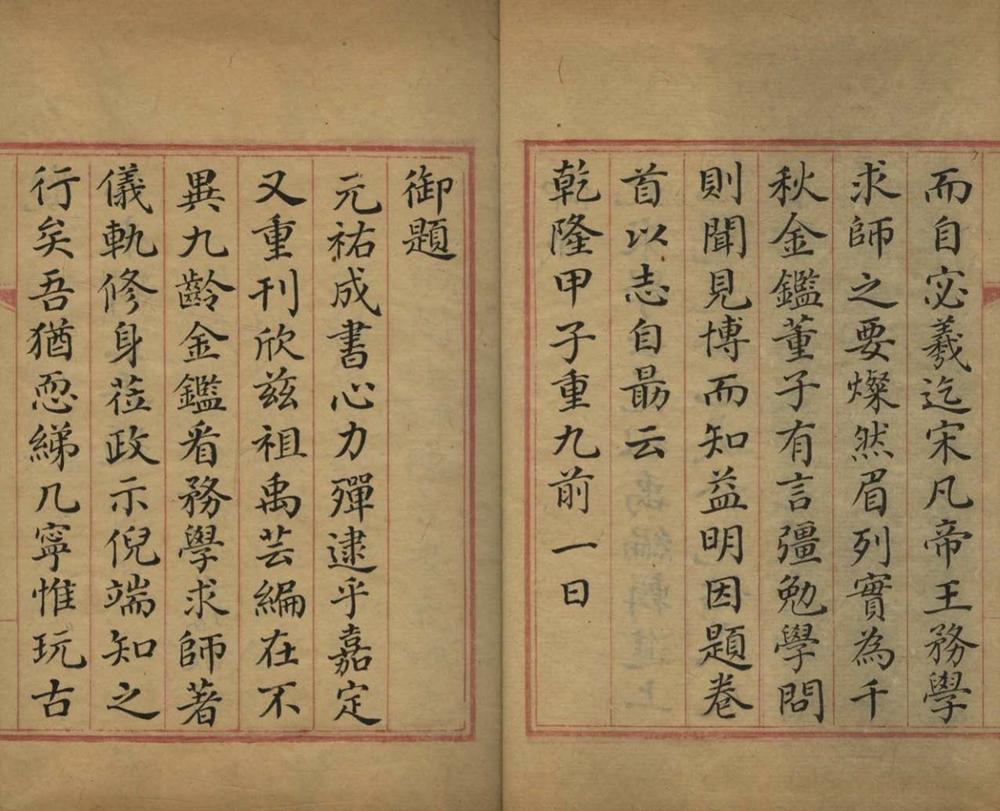 而自宓羲迄宋凡帝王務學
求師之要燦然眉列實為千
秋金鑑董子有言彊勉學問
則聞見博而知益明因題卷
首以志自勗云
乾隆甲子重九前一日
御題
元祐成書心力殫逮乎嘉定
又重刊欣兹祖禹芸編在不
異九齡金鑑看務學求師著
儀軌修身莅政示倪端知之
行矣吾猶恧綈几寧惟玩古